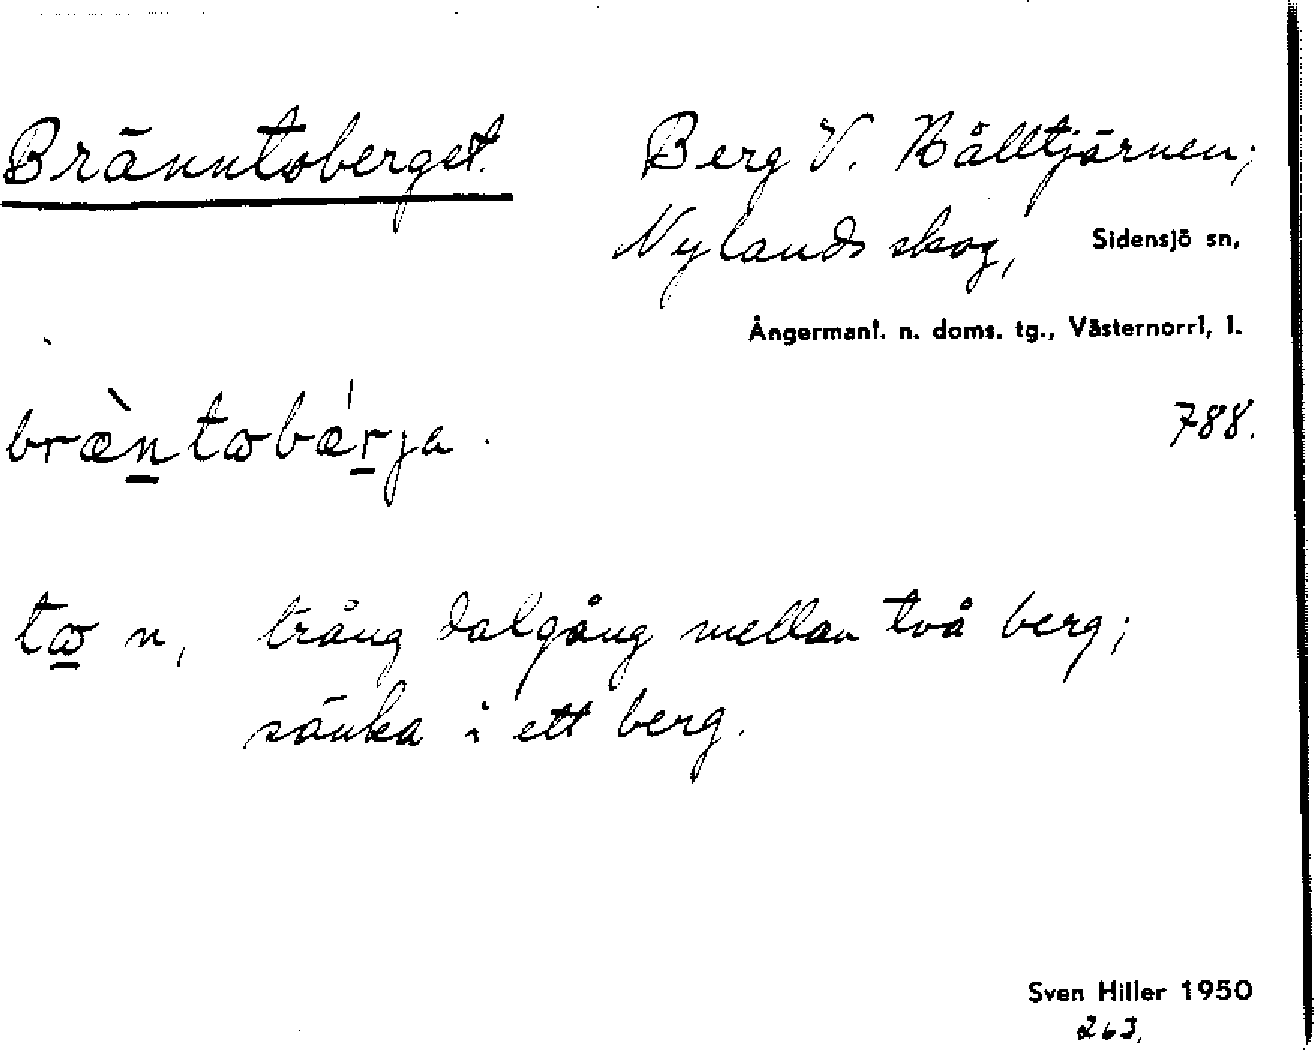 Bränntoberget. Berg V. Kålltjärnen;
Nylands skog, Sidensjö sn,
Ångermanl. n. doms. tg., Västernorrl, l.
bræ̀ntωbǽrja. 788.
tω n, trång dalgång mellan två berg;
sänka i ett berg.
Sven Hiller 1950
263.